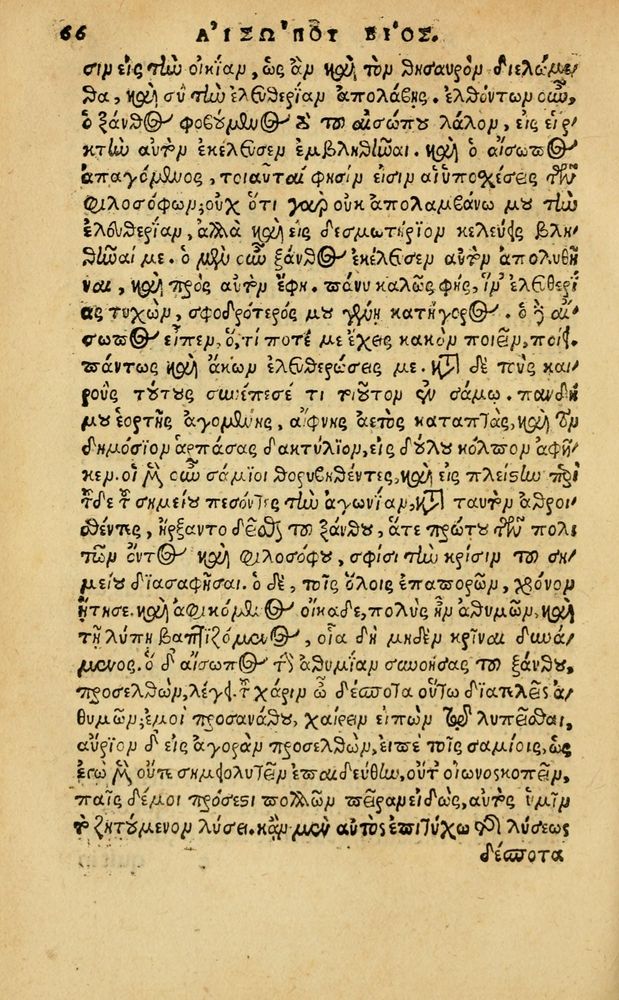 66 ΑἸΣΩ'ΠΟΥ ΒΙ'ΟΣ.
σιν εἰς τὴν οἰκίαν, ὡς ἂν καὶ τὸν θησαυρὸν διελώμε-
θα, καὶ σὺ τὴν ἐλευθερίαν ἀπολάβῃς. ἐλθόντων οὖν,
ὁ ξάνθος φοβούμενος τὸ τοῦ αἰσώπου λάλον, εἰς εἱρ-
κτὴν αὐτὸν ἐκέλευσεν ἐμβληθῆναι. καὶ ὁ αἴσωπος
ἀπαγόμενος, τοιαῦταί φησιν εἰσιν αἱ ὑποσχέσεις τῶν
φιλοσόφων; οὐχ ὅτι γὰρ οὐκ ἀπολαμβάνω μου τὴν
ἐλευθερίαν, ἀλλὰ καὶ εἰς δεσμωτήριον κελεύεις βλη-
θῆναί με. ὁ μὲν οὖν ξάνθος ἐκέλευσεν αὐτὸν ἀπολυθῆ-
ναι, καὶ πρὸς αὐτὸν ἔφη. πάνυ καλῶς φῂς, ἵν' ἐλευθερί-
ας τυχὼν, σφοδρότερός μου γένῃ κατήγορος. ὁ δὲ αἴ-
σωπος εἶπεν, ὅ, τι ποτέ με ἔχεις κακὸν ποιεῖν, ποίει.
πάντως καὶ ἄκων ἐλευθερώσεις με. κατὰ δὲ τοὺς και-
ροὺς τούτους συνέπεσέ τι τοιοῦτον ἐν σάμῳ. πανδή-
μου ἑορτῆς ἀγομένης, αἴφνης ἀετὸς καταπτὰς, καὶ τὸν
δημόσιον ἁρπάσας δακτύλιον, εἰς δούλου κόλπον ἀφῆ-
κεν. οἱ μὲν οὖν σάμιοι θορυβηθέντες, καὶ εἰς πλείστην περὶ
τοῦδε τοῦ σημείου πεσόντες τὴν ἀγωνίαν, κατὰ ταυτὸν ἀθροι-
σθέντες, ἤρξαντο δεῖσθαι τοῦ ξάνθου, ἅτε πρώτου τῶν πολι-
τῶν ὄντος καὶ φιλοσόφου, σφίσι τὴν κρίσιν τοῦ ση-
μείου διασαφῆσαι. ὁ δὲ, τοῖς ὅλοις ἐπαπορῶν, χρόνον
ᾔτησε. καὶ ἀφικόμενος οἴκαδε, πολὺς ἦν ἀθυμῶν, καὶ
τῇ λύπῃ βαπτιζόμενος, οἷα δὴ μηδὲν κρῖναι δυνά-
μενος. ὁ δ' αἴσωπος τὴν ἀθυμίαν συννοήσας τοῦ ξάνθου,
προσελθὼν, λέγει. τοῦ χάριν ὦ δέσποτα οὕτω διατελεῖς ἀ-
θυμῶν; ἐμοὶ προσανάθου, χαίρειν εἰπὼν τῷ λυπεῖσθαι,
αὔριον δ' εἰς ἀγορὰν προσελθὼν, εἰπὲ τοῖς σαμίοις, ὡς
ἐγὼ μὲν οὔτε σημειολυτεῖν ἐπαιδεύθην, οὔτ' οἰωνοσκοπεῖν,
παῖς δέ μοι πρόσεστι πολλῶν πεῖραν εἰδὼς, αὐτὸς ὑμῖν
τὸ ζητούμενον λύσει. κἂν μὲν αὐτὸς ἐπιτύχω τῆς λύσεως
δέσποτα